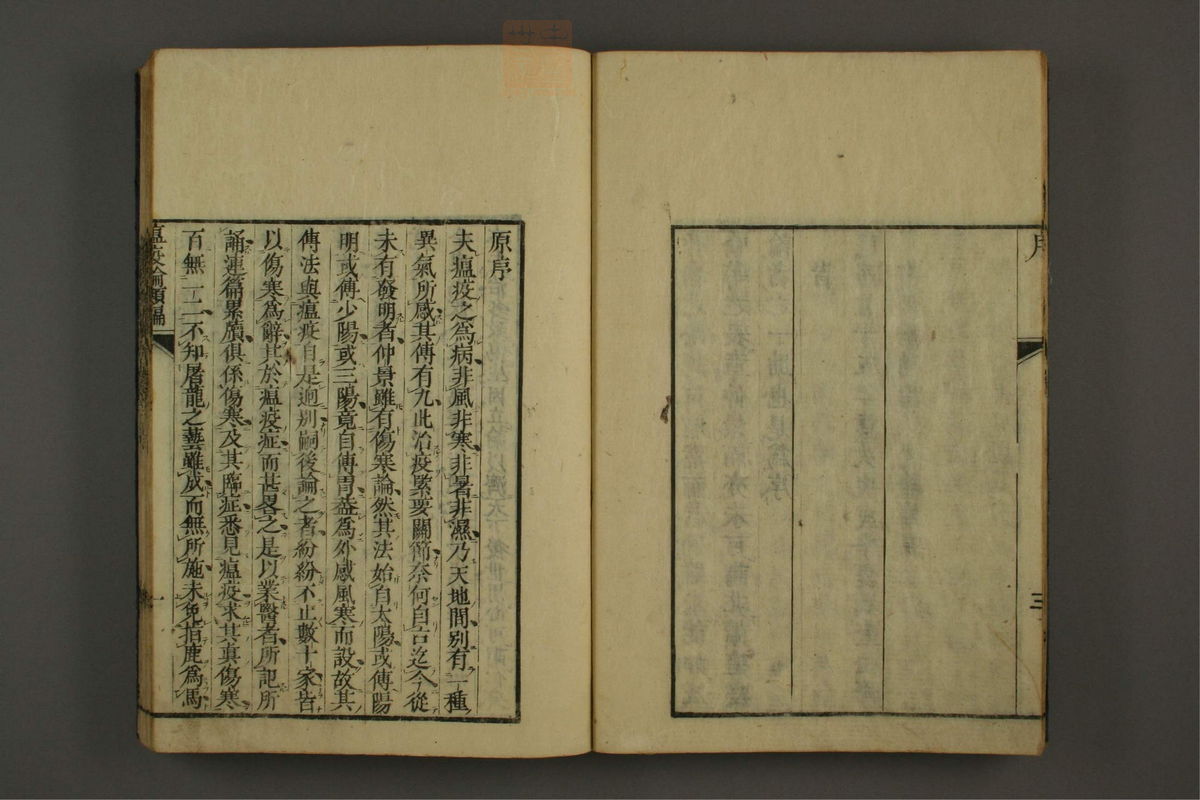 序
三
原序
夫瘟疫之為病非風非寒非暑非濕乃天地間别有一種
異氣所感其傳有九此治疫緊要關節奈何自古迄今從
未有發明者仲景雖有傷寒論然其法始自太陽或傳陽
明或傳少陽或三陽竟自傳胃葢為外感風寒而設故其
傳法與瘟疫自是迥别嗣後論之者紛紛不止數十家皆
以傷寒為辭其於瘟疫症而甚畧之是以業醫者所記所
誦連篇累牘俱係傷寒及其臨症悉見瘟疫求其真傷寒
百無一二不知屠龍之藝雖成而無所施未免指鹿為馬
瘟疫論類編